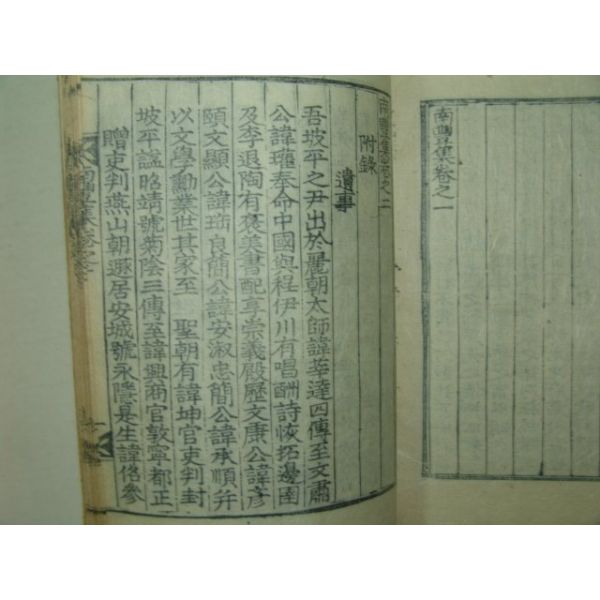 南豐集卷之一
南豐集卷之二
附錄
遺事
吾坡平之尹出於麗朝太師諱莘達四傳至文肅
公諱瓘奉命中國與程伊川有唱酬詩恢拓邊圉
及李退陶有褒美書配享崇義殿歷文康公諱彦
頤文顯公諱珤良簡公諱安淑忠簡公諱承順幷
以文學勳業世其家至 聖朝有諱坤官吏判封
坡平諡昭靖號菊陰三傳至諱興商官敦寧都正
贈吏判燕山朝遯居安城號永隱是生諱佫參